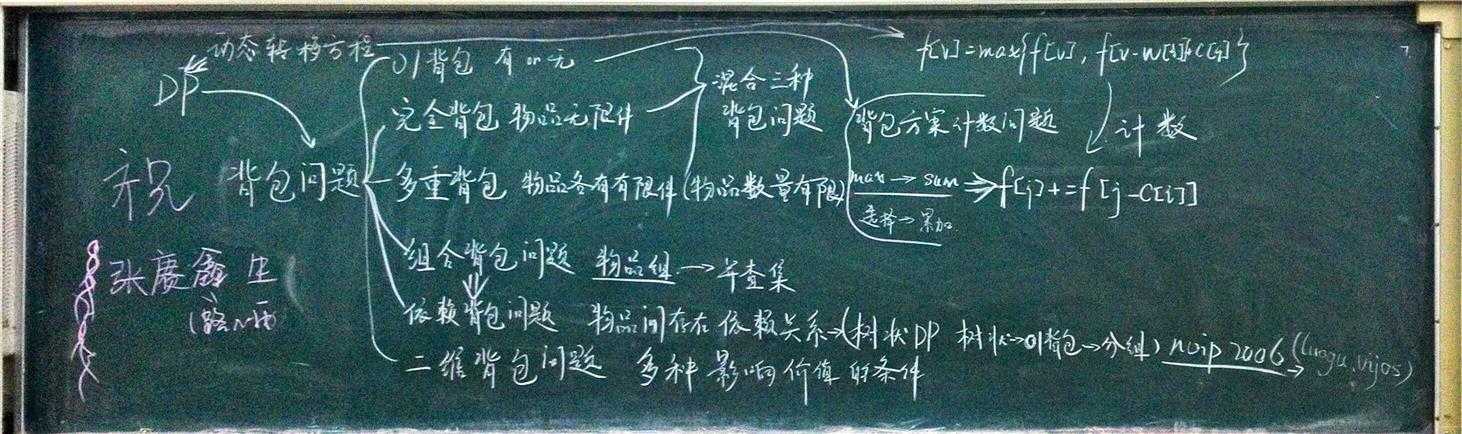 动态转移方程
f[v]=max{f[v], f[v-w[i]]+c[i]}
DP
01背包 有or无
完全背包 物品无限件
混合三种
背包问题
背包方案计数问题
计数
祝
背包问题
多重背包 物品各有有限件(物品数量有限)
max→sum
f[j]+=f[j-c[i]]
选择→累加
组合背包问题 物品组→并查集
张赓鑫 生
依赖背包问题 物品间存在依赖关系→(树状DP 树状→01背包→分组) noip 2006 (luogu.vijos)
二维背包问题 多种影响价值的条件